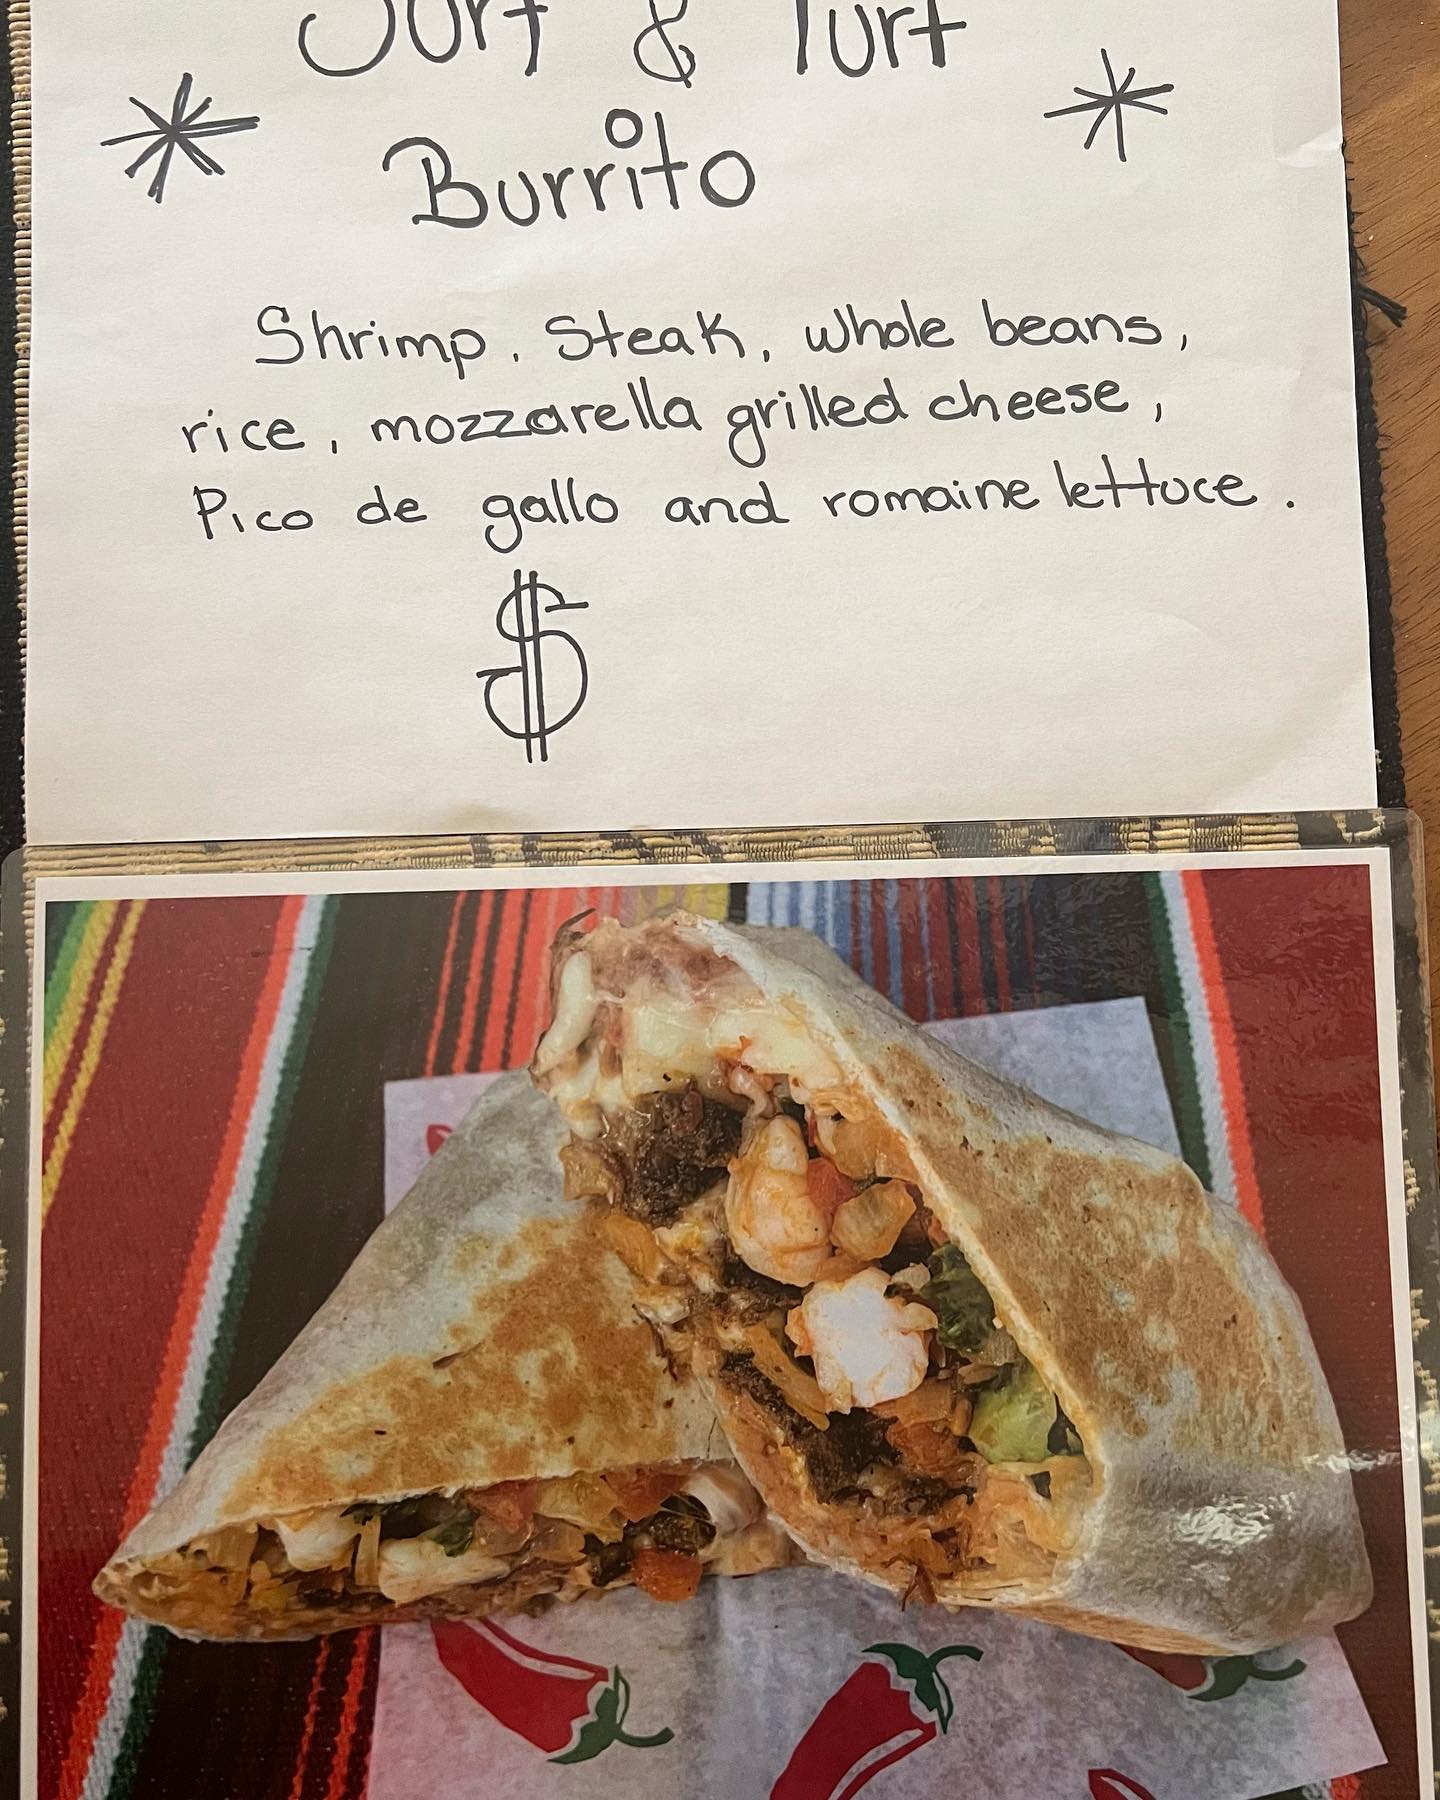 Surf & Turf
Burrito
Shrimp, Steak, whole beans,
rice, mozzarella grilled cheese,
Pico de gallo and romaine lettuce.
$